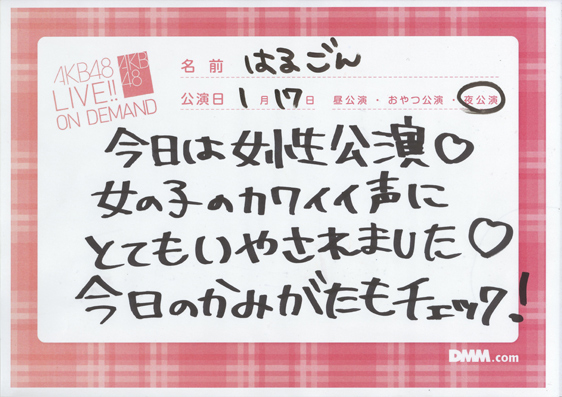 AKB48
LIVE!!
ON DEMAND
AKB
48
名前 はるごん
公演日 1月17日 昼公演・おやつ公演・夜公演
今日は女性公演♡
女の子のカワイイ声に
とてもいやされました♡
今日のかみがたもチェック!
DMM.com